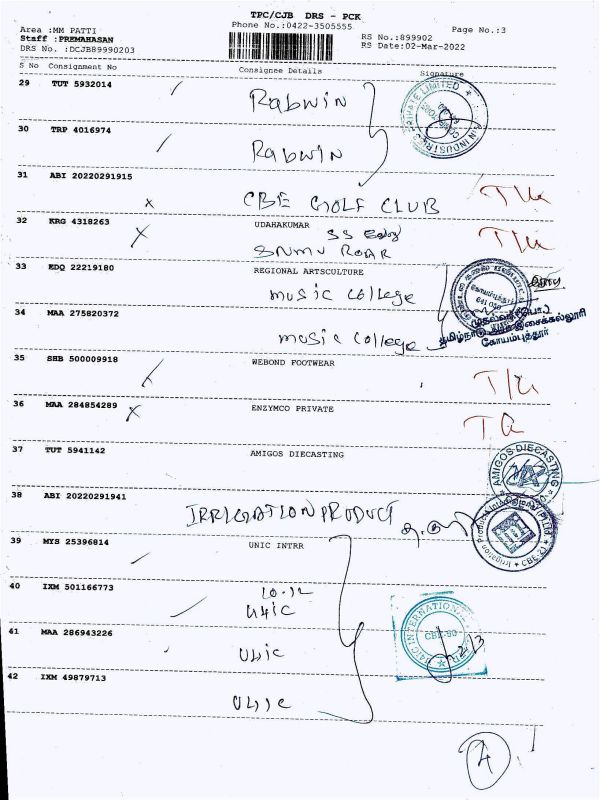 TPC/CJB DRS - PCK
Area :MM PATTI
Phone No.:0422-3505555
Page No.:3
Staff :PREMAHASAN
RS No.:899902
DRS No. :DCJB89990203
RS Date:02-Mar-2022
S No Consignment No Consignee Details Signature
29 TUT 5932014
Rabwin
PRIVATE LIMITED
30 TRP 4016974
Rabwin
31 ABI 20220291915
CBE GOLF CLUB
32 KRG 4318263 UDAHAKUMAR
SS
33 EDQ 22219180 REGIONAL ARTSCULTURE
music college
34 MAA 275820372
music college
கோயம்புத்தூர்
35 SHB 500009918 WEBOND FOOTWEAR
36 MAA 284854289 ENZYMCO PRIVATE
37 TUT 5941142 AMIGOS DIECASTING
AMIGOS DIECASTING
38 ABI 20220291941
IRRIGATION PRODUCT
39 MYS 25396814 UNIC INTRR
40 IXM 501166773
10.12
U4IC
41 MAA 286943226
U4IC
42 IXM 49879713
U4IC
4